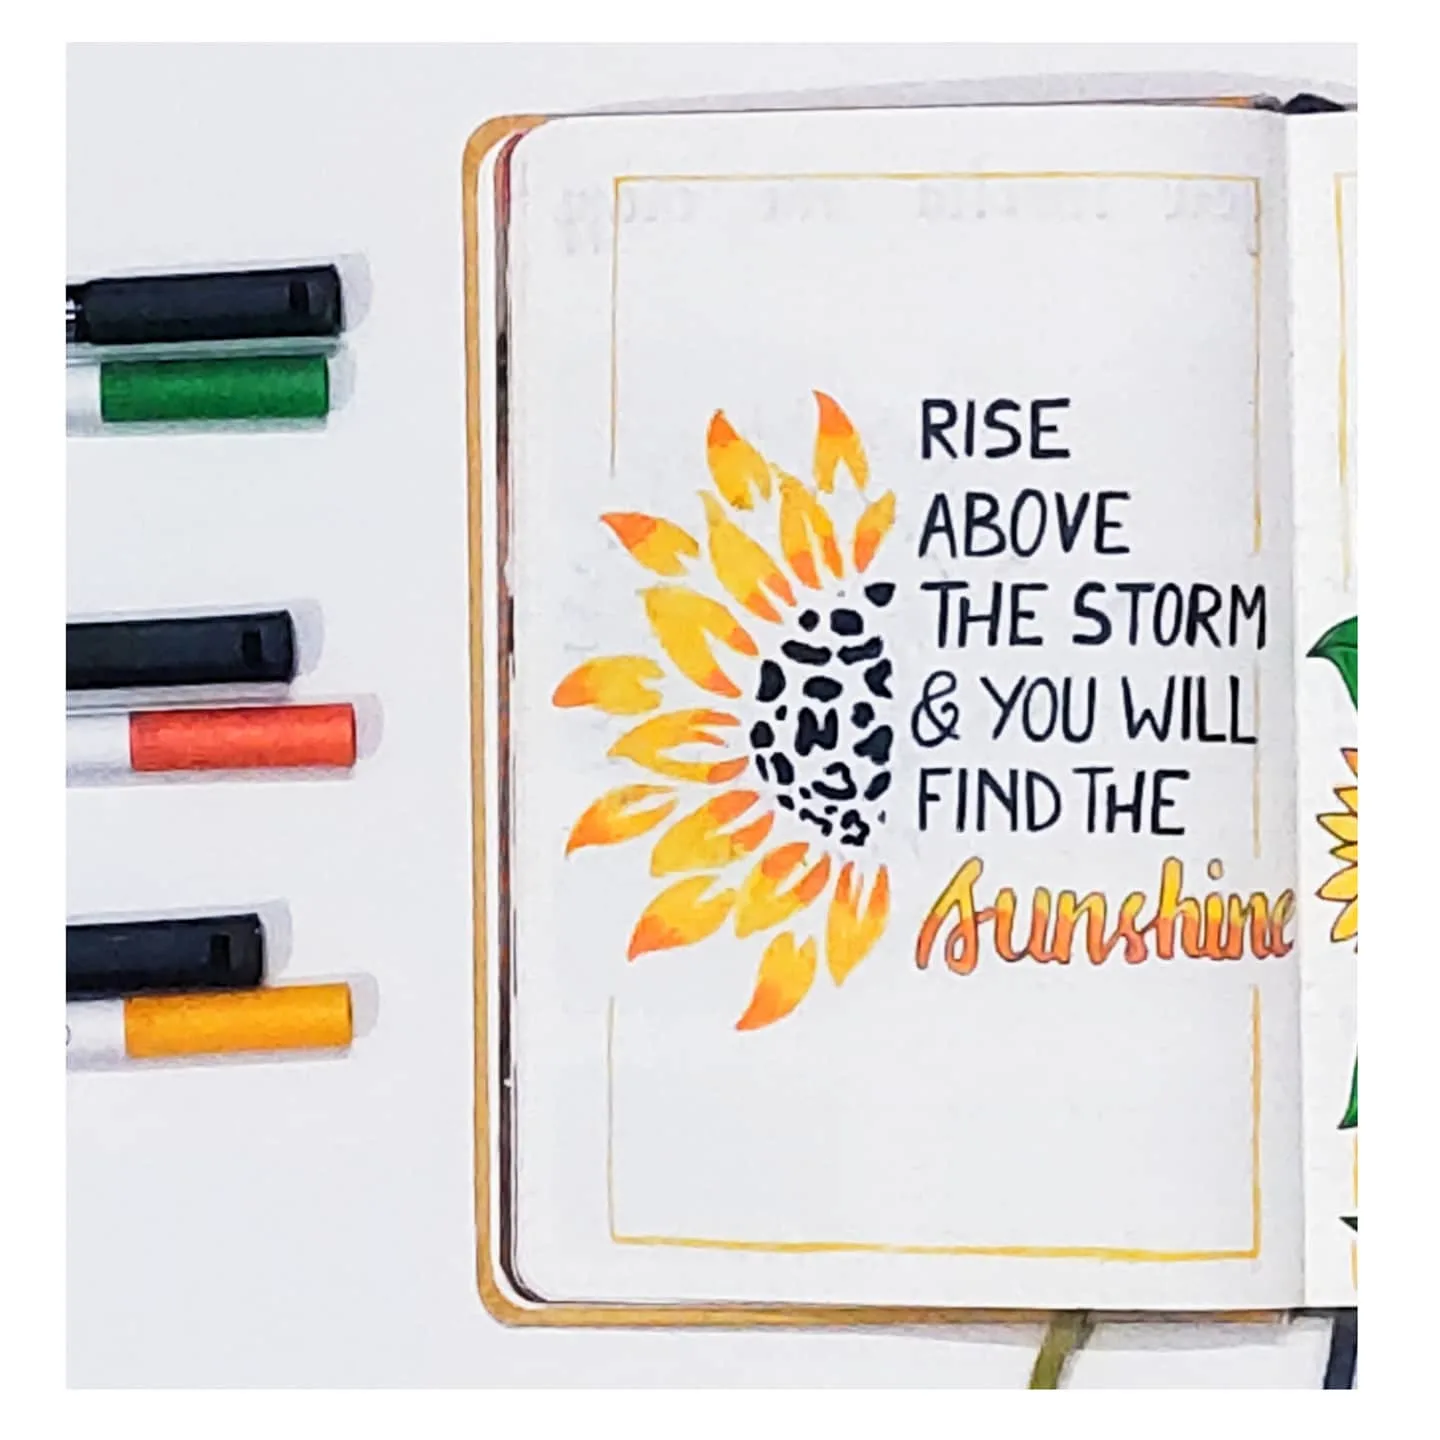 RISE
ABOVE
THE STORM
& YOU WILL
FIND THE
sunshine